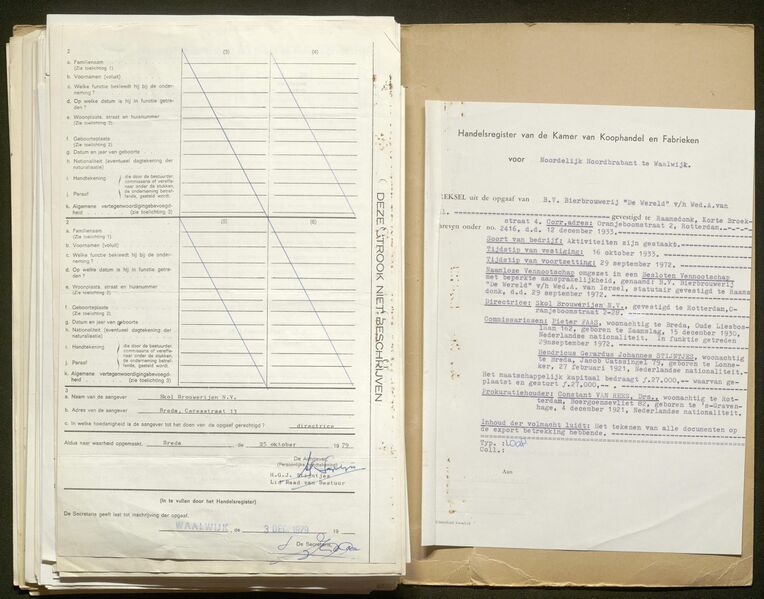 2
(3)
(4)
a. Familienaam
(Zie toelichting 1)
b. Voornamen (voluit)
c. Welke functie bekleedt hij bij de onder-
neming?
d. Op welke datum is hij in functie getre-
den?
e. Woonplaats, straat en huisnummer
(Zie toelichting 2)
f. Geboorteplaats
(Zie toelichting 2)
g. Datum en jaar van geboorte
h. Nationaliteit (eventueel dagtekening der
naturalisatie)
i. Handtekening
j. Paraaf
die door de bestuurder,
commissaris of vereffe-
naar onder de stukken,
de onderneming betref-
fende, gesteld wordt)
k. Algemene vertegenwoordigingsbevoegd-
heid (zie toelichting 3)
2
(3)
(4)
a. Familienaam
(Zie toelichting 1)
b. Voornamen (voluit)
c. Welke functie bekleedt hij bij de onder-
neming?
d. Op welke datum is hij in functie getre-
den?
e. Woonplaats, straat en huisnummer
(Zie toelichting 2)
f. Geboorteplaats
(Zie toelichting 2)
g. Datum en jaar van geboorte
h. Nationaliteit (eventueel dagtekening der
naturalisatie)
i. Handtekening
j. Paraaf
die door de bestuurder,
commissaris of vereffe-
naar onder de stukken,
de onderneming betref-
fende, gesteld wordt)
k. Algemene vertegenwoordigingsbevoegd-
heid (zie toelichting 3)
3
a. Naam van de aangever Skol Brouwerijen N.V.
b. Adres van de aangever Breda, Ceresstraat 13
c. In welke hoedanigheid is de aangever tot het doen van de opgaaf gerechtigd? directrice
Aldus naar waarheid opgemaakt, Breda de 25 oktober 1979
De Aangever
(Persoonlijke handtekening)
H.G.J. Stijntjes
Lid Raad van Bestuur
(In te vullen door het Handelsregister)
De Secretaris geeft last tot inschrijving der opgaaf.
WAALWIJK, de 3 DEC. 1979 19
De Secretaris,
DEZE STROOK NIET BESCHRIJVEN
Handelsregister van de Kamer van Koophandel en Fabrieken
voor Noordelijk Noordbrabant te Waalwijk.
REKSEL uit de opgaaf van B.V. Bierbrouwerij "De Wereld" v/h Wed.A.van
gevestigd te Raamsdonk, Korte Broek-
straat 4, Corr.adres: Oranjeboomstraat 2, Rotterdam.
hreven onder no. 2416, d.d. 12 december 1933.
Soort van bedrijf: Aktiviteiten zijn gestaakt.
Tijdstip van vestiging: 16 oktober 1933.
Tijdstip van voortzetting: 29 september 1972.
Naamloze Vennootschap omgezet in een Besloten Vennootschap
met beperkte aansprakelijkheid, genaamd: B.V. Bierbrouwerij
"De Wereld" v/h Wed.A. van Iersel, statutair gevestigd te Raams
donk, d.d. 29 september 1972.
Directrice: Skol Brouwerijen N.V., gevestigd te Rotterdam,O-
ranjeboomstraat 2-28.
Commissarissen: Pieter PAAS, woonachtig te Breda, Oude Liesbos-
laan 162, geboren te Zaamslag, 15 december 1930,
Nederlandse nationaliteit. In funktie getreden
29september 1972.
Hendricus Gerardus Johannes STIJNTJES, woonachtig
te Breda, Jacob Catssingel 79, geboren te Lonne-
ker, 27 februari 1921, Nederlandse nationaliteit.
Het maatschappelijk kapitaal bedraagt ƒ.27.000,-- waarvan ge-
plaatst en gestort ƒ.27.000,--
Prokuratiehouder: Constant VAN REES, Drs., woonachtig te Rot-
terdam, Boergoensevliet 82, geboren te 's-Graven-
hage, 4 december 1921, Nederlandse nationaliteit.
Inhoud der volmacht luidt: Het tekenen van alle documenten op
de export betrekking hebbende.
Typ.:
Coll.:
Aan